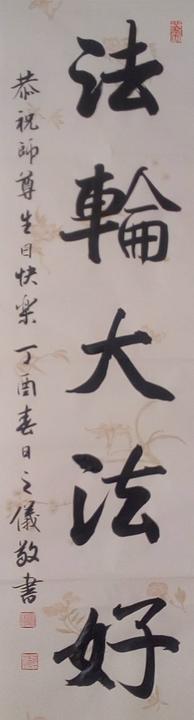 法輪大法好
恭祝師尊生日快樂 丁酉春日之儀敬書